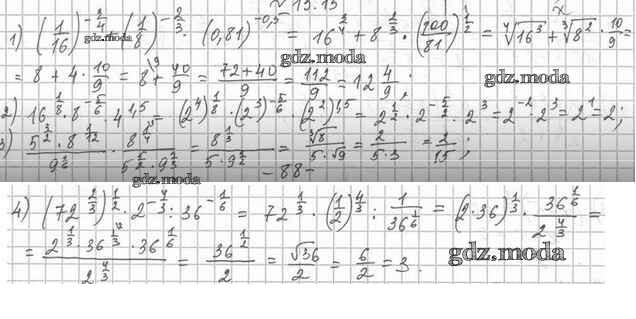 № 15.15
1) (1/16)^(-3/4) + (1/8)^(-2/3) · (0,81)^(-0,5) = 16^(3/4) + 8^(2/3) · (100/81)^(1/2) = ⁴√16³ + ³√8² · 10/9 =
= 8 + 4 · 10/9 = 8 + 40/9 = (72+40)/9 = 112/9 = 12 4/9 ;
2) 16^(1/8) · 8^(-5/6) · 4^(1,5) = (2⁴)^(1/8) · (2³)^(-5/6) · (2²)^(1,5) = 2^(1/2) · 2^(-5/2) · 2³ = 2^(-2) · 2³ = 2¹ = 2;
3) = ³√8/(5·√9) = 2/(5·3) = 2/15 ;
- 88 -
4) (72^(2/3))^(1/2) · 2^(-4/3) : 36^(-1/6) = 72^(1/3) · (1/2)^(4/3) : 1/36^(1/6) = (2·36)^(1/3) · 36^(1/6)/2^(4/3) =
= (2^(1/3) · 36^(1/3) · 36^(1/6))/2^(4/3) = 36^(1/2)/2 = √36/2 = 6/2 = 3.
gdz.moda
gdz.moda
gdz.moda
gdz.moda